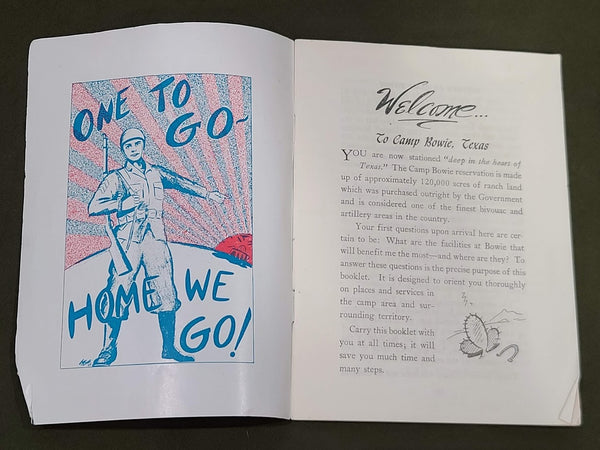 ONE TO
GO-
HOME WE
GO!
Welcome...
To Camp Bowie, Texas
YOU are now stationed "deep in the heart of
Texas." The Camp Bowie reservation is made
up of approximately 120,000 acres of ranch land
which was purchased outright by the Government
and is considered one of the finest bivouac and
artillery areas in the country.
Your first questions upon arrival here are cer-
tain to be: What are the facilities at Bowie that
will benefit me the most—and where are they? To
answer these questions is the precise purpose of this
booklet. It is designed to orient you thoroughly
on places and services in
the camp area and sur-
rounding territory.
Carry this booklet with
you at all times; it will
save you much time and
many steps.